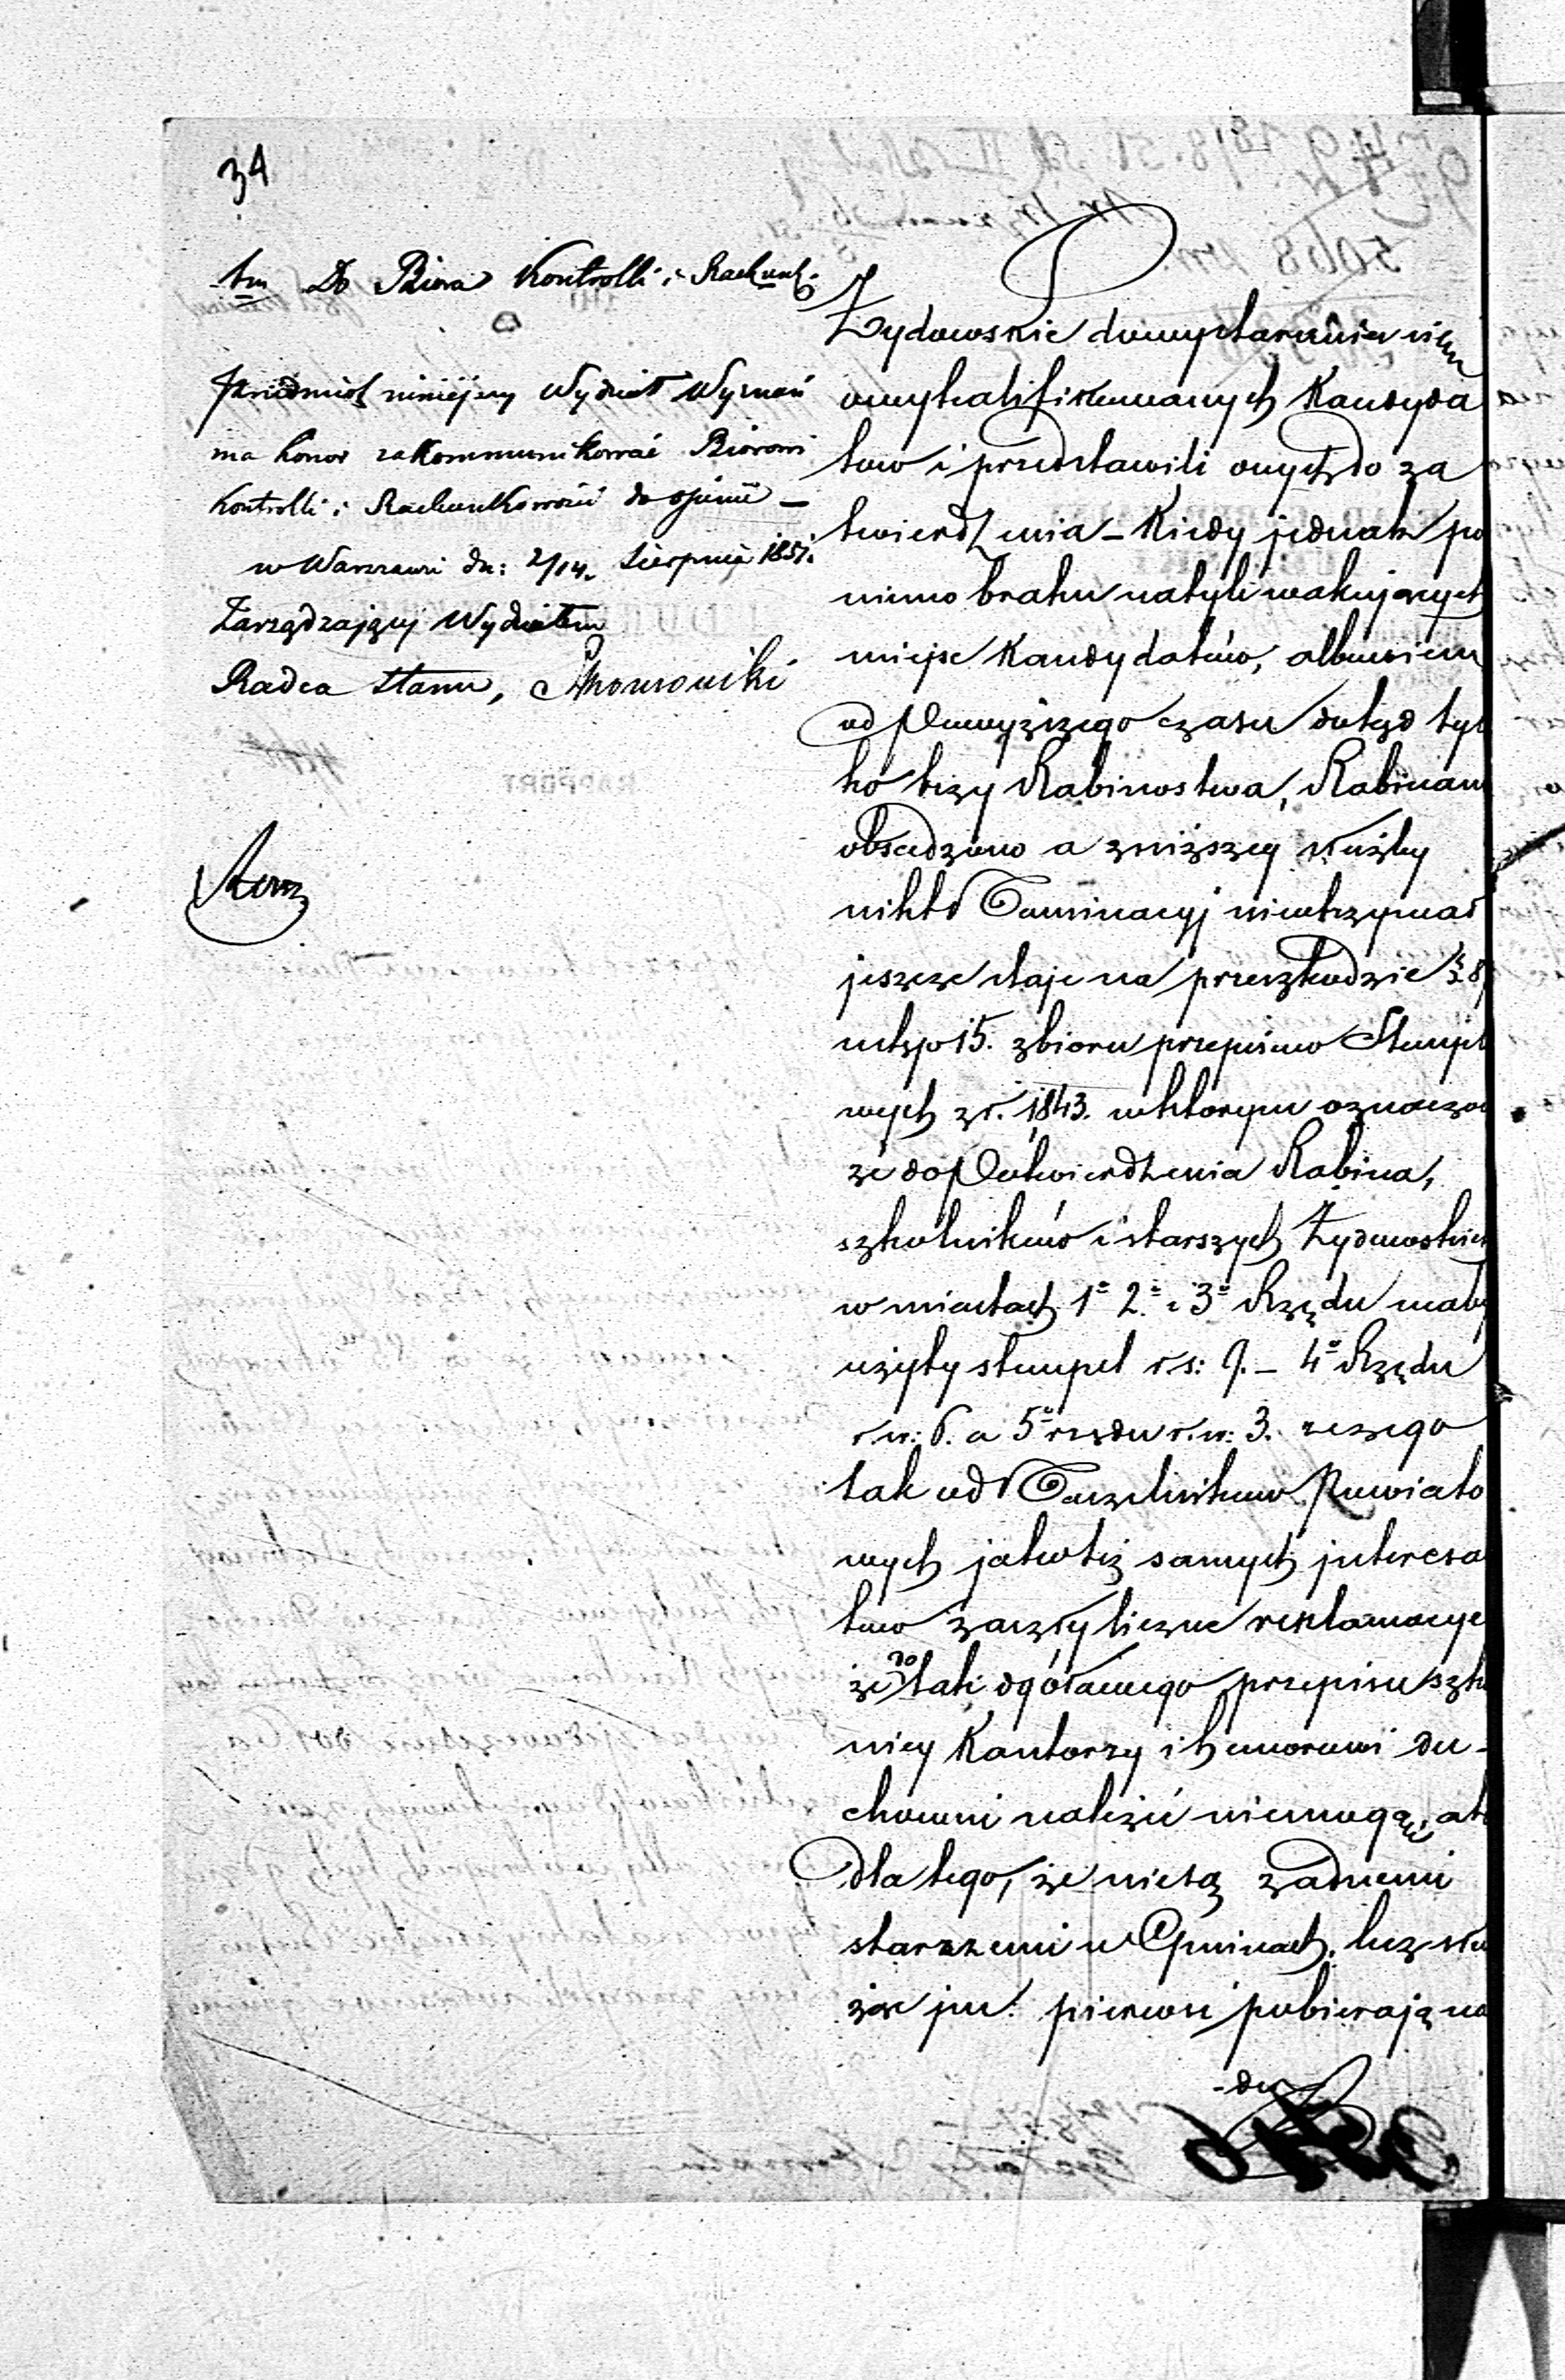 34
Do Biura Kontrolli i Rachunk:
Przedmiot niniejszy Wydział Wyznań
ma honor zakommunikować Biórowi
Kontrolli i Rachunkowości do opinii —
w Warszawie dn: 2/14. Sierpnia 1851.
Zarządzający Wydziałem
Radca Stanu,
Żydowskie dowystarania
wwykalifikowanych Kandyda
tow i przedstawili onych do za
twierdzenia – Kiedy jednak po
mimo braku natyli wakujących
miejsc Kandydatów, albowiem
od Powyższego czasu dotąd tyl
ko trzy Rabinostwa, Rabinami
obsadzono a zniższey służby
nikt Nominacyj nieotrzymał
jeszcze staje na przeszkodzie § 8
ustęp 15. zbioru przepisów Stemplo
wych z r. 1843. wktórym oznaczon
że do Potwierdzenia Rabina,
szkolników i starszych Żydowskich
w miastach 1º 2º i 3º Rzędu maby
użyty stempel rs: 9. – 4º Rzędu
rs: 6. a 5º rzędu rs: 3. z czego
tak od Naczelników Powiato
wych jakoteż samych interesan
tow zaszły liczne reklamacye
że do tak ogólnego przepisu szkol
nicy Kantorzy i honorowi du-
chowni należeć niemogą, ale
dla tego, że niesą żadnemi
starszemi w Gminach, lecz słu
żące jm. pierwsi pobierają na
-du